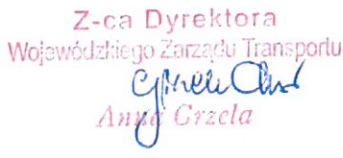 Z-ca Dyrektora
Wojewódzkiego Zarządu Transportu
Anna Grzela